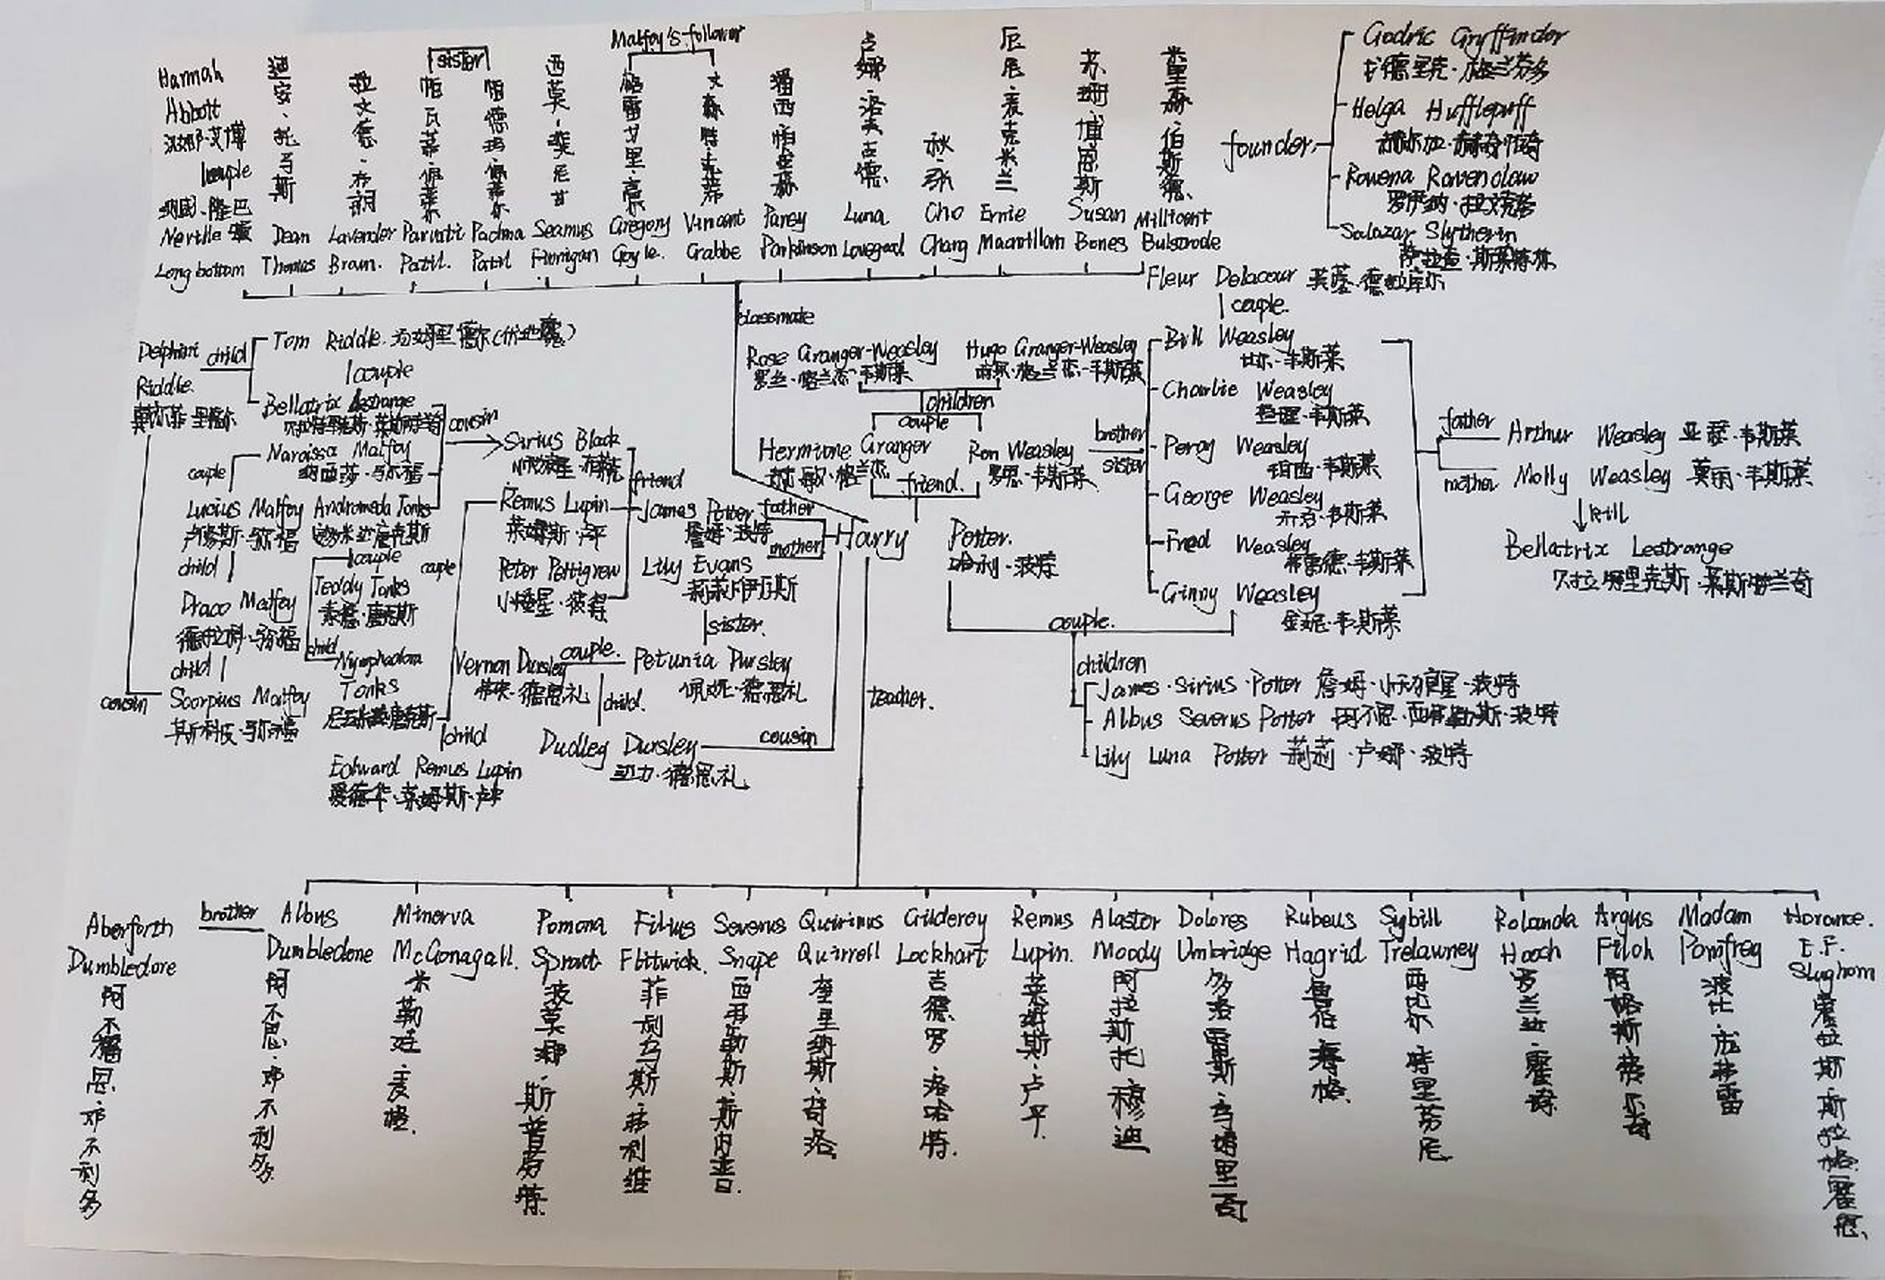 Hannah
Abbott
汉娜·艾博
couple
纳威·隆巴
Neville
Longbottom
迪安·托马斯
Dean
Thomas
拉文德·布朗
Lavender
Brawn.
sister
帕瓦蒂·佩蒂
Parvati
Patil.
帕德玛·佩蒂尔
Padma
Patil
西莫·斐尼甘
Seamus
Finnigan
Malfoy's follower
格雷戈里·高尔
Gregory
Goyle.
文森特·克拉布
Vincent
Crabbe
潘西·帕金森
Pansy
Parkinson
卢娜·洛夫古德
Luna
Lovegood
秋·张
Cho
Chang
厄尼·麦克米兰
Ernie
Macmillan
苏珊·博恩斯
Susan
Bones
米里森·伯斯德
Millicent
Bulstrode
founder
Godric Gryffindor
戈德里克·格兰芬多
Helga Hufflepuff
赫尔加·赫奇帕奇
Rowena Ravenclaw
罗伊纳·拉文克劳
Salazar Slytherin
萨拉查·斯莱特林
classmate
Fleur Delacour 芙蓉·德拉库尔
couple.
Delphini
Riddle.
child
Tom Riddle.
couple
Bellatrix Lestrange
贝拉特里克斯·莱斯特兰奇
cousin
Narcissa Malfoy
纳西莎·马尔福
couple
Lucius Malfoy
卢修斯·马尔福
Andromeda Tonks
couple
Teddy Tonks
泰德·唐克斯
child
Draco Malfoy
德拉科·马尔福
child
Nymphadora
Tonks
child
cousin
Scorpius Malfoy
斯科皮·马尔福
Sirius Black
小天狼星·布莱克
Remus Lupin
莱姆斯·卢平
Peter Pettigrew
小矮星·彼得
friend
couple
child
Edward Remus Lupin
爱德华·莱姆斯·卢平
James Potter
詹姆·波特
father
mother
Lily Evans
莉莉·伊万斯
sister.
Vernon Dursley
弗农·德思礼
couple.
Petunia Dursley
佩妮·德思礼
child.
Dudley Dursley
达力·德思礼
cousin
Rose Granger-Weasley
罗丝·格兰杰-韦斯莱
Hugo Granger-Weasley
雨果·格兰杰-韦斯莱
children
couple
Hermione Granger
赫敏·格兰杰
Ron Weasley
罗恩·韦斯莱
friend.
Harry Potter.
哈利·波特
brother
sister
Bill Weasley
比尔·韦斯莱
Charlie Weasley
查理·韦斯莱
Percy Weasley
珀西·韦斯莱
George Weasley
乔治·韦斯莱
Fred Weasley
弗雷德·韦斯莱
Ginny Weasley
金妮·韦斯莱
father
mother
Arthur Weasley 亚瑟·韦斯莱
Molly Weasley 莫丽·韦斯莱
kill
Bellatrix Lestrange
贝拉特里克斯·莱斯特兰奇
couple.
children
James·Sirius·Potter 詹姆·小天狼星·波特
Albus Severus Potter 阿不思·西弗勒斯·波特
Lily Luna Potter 莉莉·卢娜·波特
teacher.
Aberforth
Dumbledore
阿不福思·邓不利多
brother
Albus
Dumbledore
阿不思·邓不利多
Minerva
McGonagall.
米勒娃·麦格.
Pomona
Sprout
波莫娜·斯普劳特
Filius
Flitwick.
菲利乌斯·弗利维
Severus
Snape
西弗勒斯·斯内普.
Quirinus
Quirrell
奎里纳斯·奇洛
Gilderoy
Lockhart
吉德罗·洛哈特.
Remus
Lupin.
莱姆斯·卢平.
Alastor
Moody
阿拉斯托·穆迪
Dolores
Umbridge
多洛雷斯·乌姆里奇
Rubeus
Hagrid
鲁伯·海格.
Sybill
Trelawney
西比尔·特里劳尼
Rolanda
Hooch
罗兰达·霍琦
Argus
Filch
阿格斯·费尔奇
Madam
Pomfrey
波比·庞弗雷
Horance.
E.F.
Slughorn
霍拉斯·斯拉格霍恩